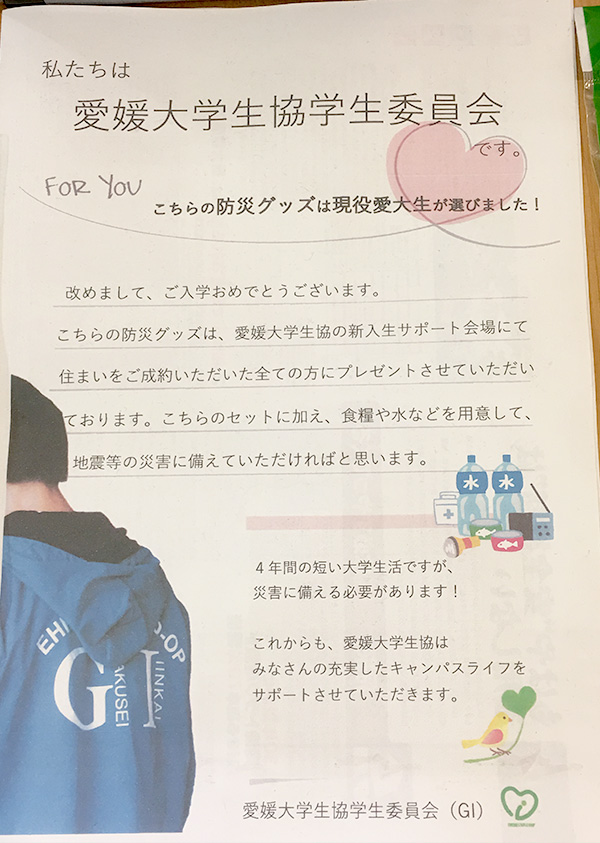 私たちは
愛媛大学生協学生委員会
です。
FOR YOU
こちらの防災グッズは現役愛大生が選びました！
改めまして、ご入学おめでとうございます。
こちらの防災グッズは、愛媛大学生協の新入生サポート会場にて
住まいをご成約いただいた全ての方にプレゼントさせていただい
ております。こちらのセットに加え、食糧や水などを用意して、
地震等の災害に備えていただければと思います。
水 水
４年間の短い大学生活ですが、
災害に備える必要があります！
これからも、愛媛大学生協は
みなさんの充実したキャンパスライフを
サポートさせていただきます。
EH
O-OP
GI
AKUSEI
IINKAI
愛媛大学生協学生委員会（GI）